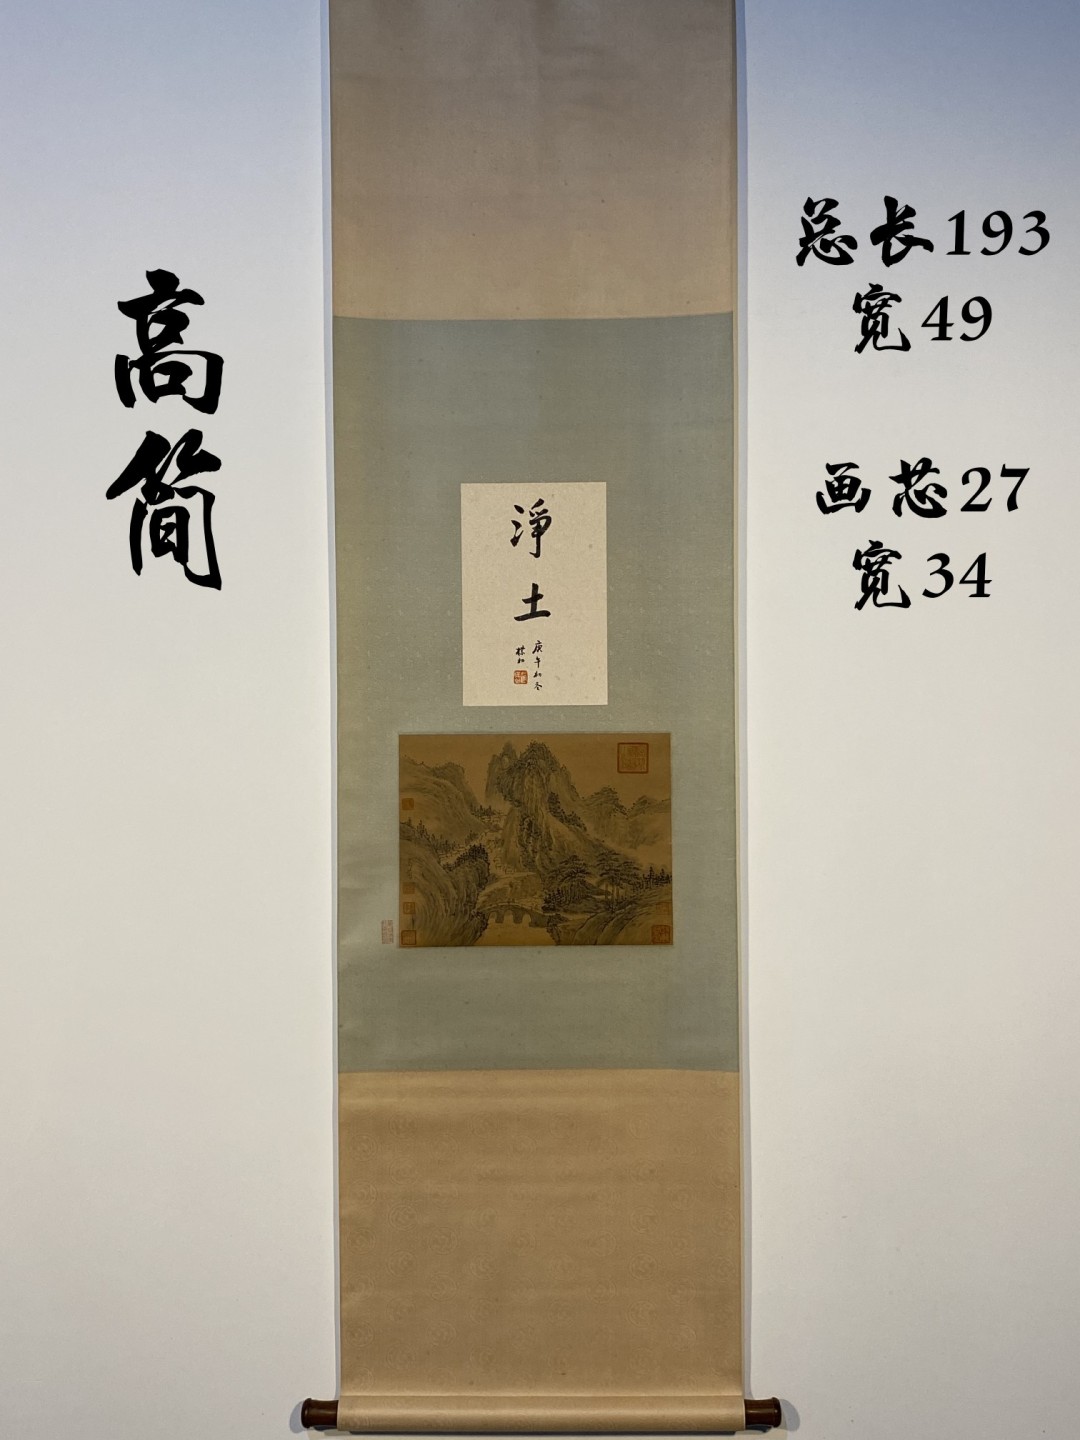 高简
总长193
宽49
画芯27
宽34
淨土
庚午初冬